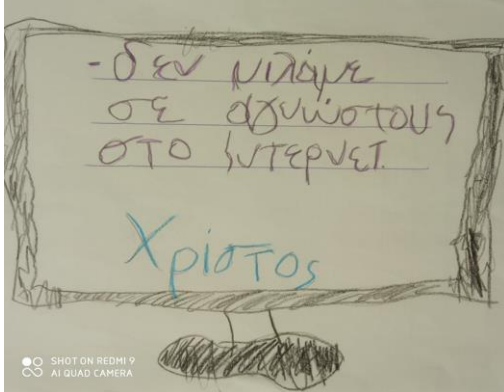 -δεν μιλάμε
σε αγνώστους
στο ίντερνετ.
Χρίστος
SHOT ON REDMI 9
AI QUAD CAMERA